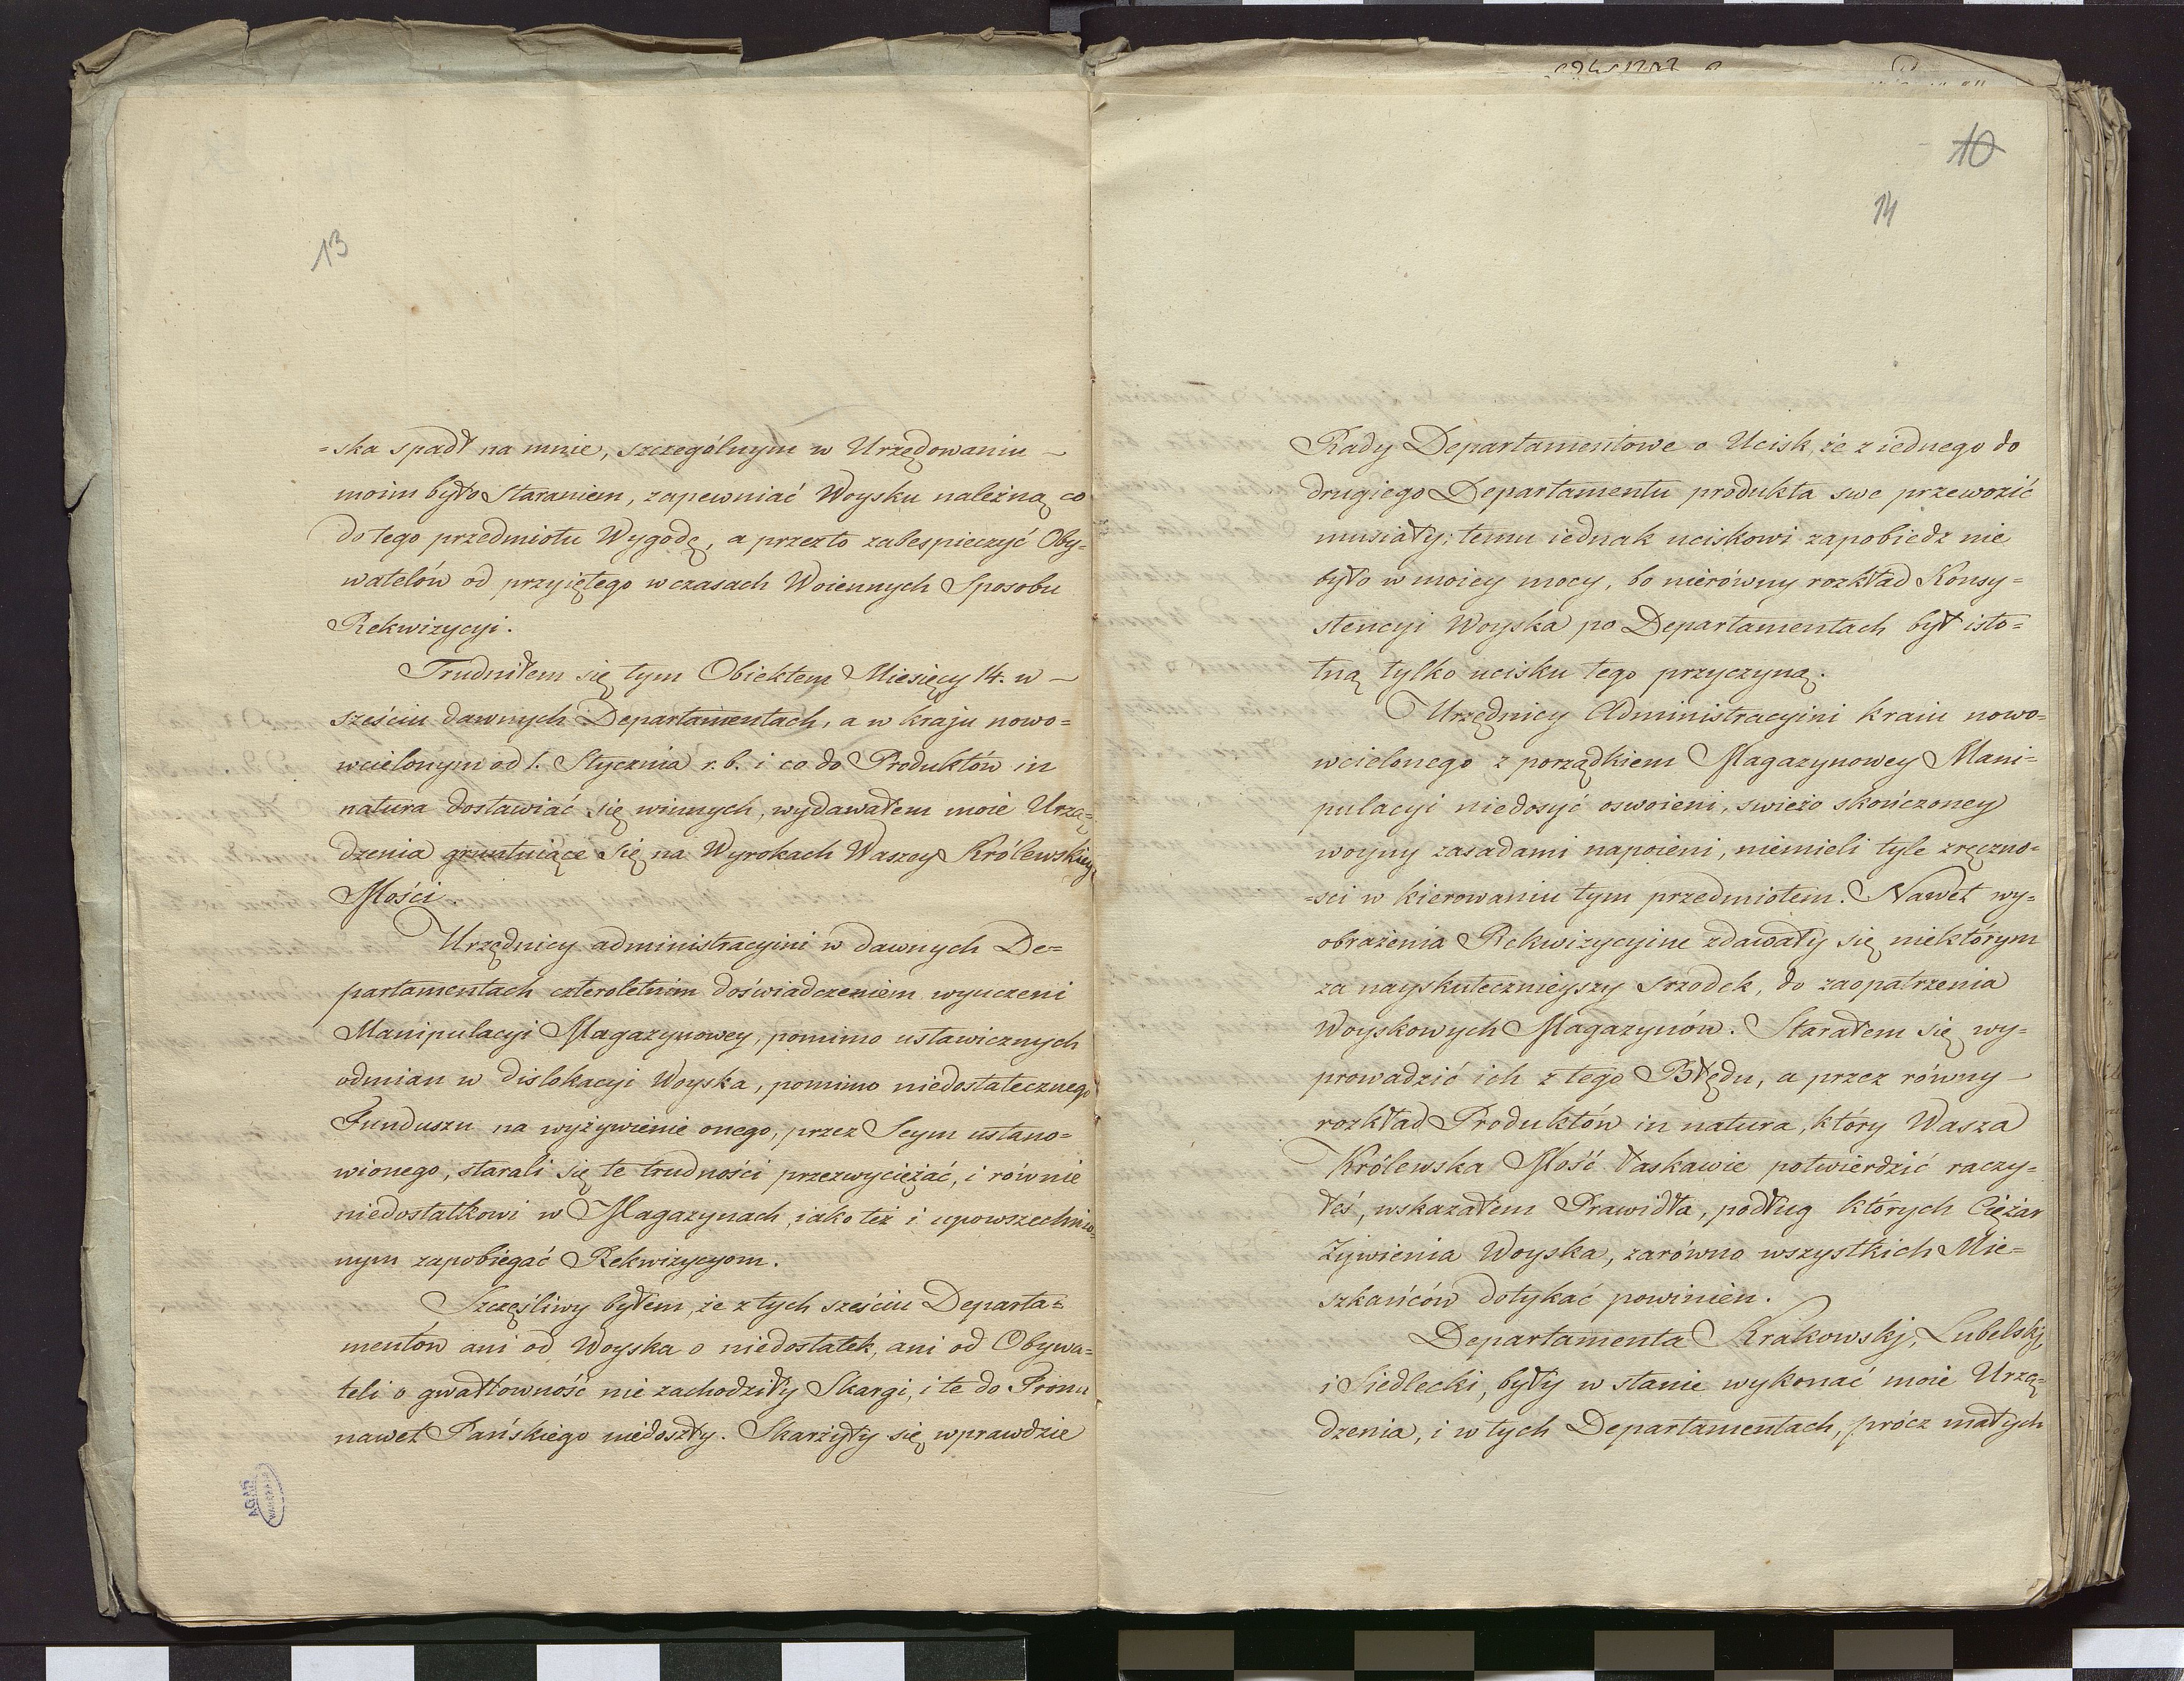 13
=ska spadł na mnie, szczególnym w Urzędowaniu –
moim było Staraniem, zapewniać Woysku należną co
do tego przedmiotu Wygodę, a przezto zabespieczyć Oby=
watelów od przyiętego w czasach Woiennych Sposobu
Rekwizycyi.
Trudniłem się tym Obiektem Miesięcy 14. w –
sześciu dawnych Departamentach, a w kraju nowo=
wcielonym od 1. Stycznia r. b. i co do Produktów in
natura dostawiać się winnych, wydawałem moie Urzą=
dzenia gruntuiące się na Wyrokach Waszey Królewskiey
Mości.
Urzędnicy administracyini w dawnych De=
partamentach czteroletnim doświadczeniem wyuczeni
Manipulacyi Magazynowey, pomimo ustawicznych
odmian w dislokacyi Woyska, pomimo niedostatecznego
Funduszu na wyżywienie onego, przez Seym ustano=
wionego, starali się te trudności przezwyciężać, i równie
niedostatkowi w Magazynach, iako też i upowszechnio=
nym zapobiegać Rekwizycyom.
Szczęśliwy byłem, że z tych sześciu Departa=
mentów ani od Woyska o niedostatek, ani od Obywa=
teli o gwałtowność nie zachodziły Skargi, i te do Tronu
nawet Pańskiego niedoszły. Skarżyły się wprawdzie
AGAD
WARSZAWA
10
14
Rady Departamentowe o Ucisk, że z iednego do
drugiego Departamentu produkta swe przewozić
musiały; temu iednak uciskowi zapobiedz nie
było w moiey mocy, bo nierówny rozkład Konsy=
stencyi Woyska po Departamentach był isto=
tną tylko ucisku tego przyczyną.
Urzędnicy Administracyini kraiu nowo=
wcielonego z porządkiem Magazynowey Mani=
pulacyi niedosyć oswoieni, swieżo skończoney
woyny zasadami napoieni, niemieli tyle zręczno=
=sci w kierowaniu tym przedmiotem. Nawet wy=
obrażenia Rekwizycyine zdawały się niektórym
za nayskutecznieyszy srzodek, do zaopatrzenia
Woyskowych Magazynów. Starałem się wy=
prowadzić ich z tego Błędu, a przez równy –
rozkład Produktów in natura, który Wasza
Królewska Mość łaskawie potwierdzić raczy=
łeś, wskazałem Prawidła, podług których Ciężar
Żywienia Woyska, zarówno wszystkich Mie=
szkańców dotykać powinien.
Departamenta Krakowskj, Lubelskj,
i Siedlecki, były w stanie wykonać moie Urzą=
dzenia, i w tych Departamentach, prócz małych